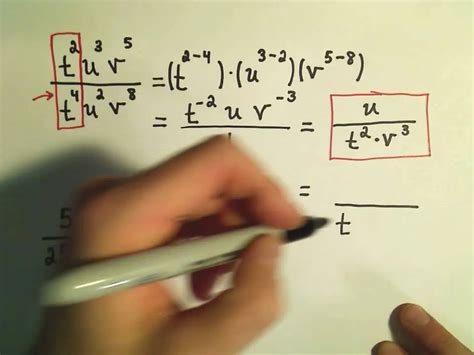 t² u³ v⁵ / t⁴ u² v⁸ = (t²⁻⁴)·(u³⁻²)(v⁵⁻⁸)
= t⁻² u v⁻³ / = u / t²·v³
= / t
5 / 2